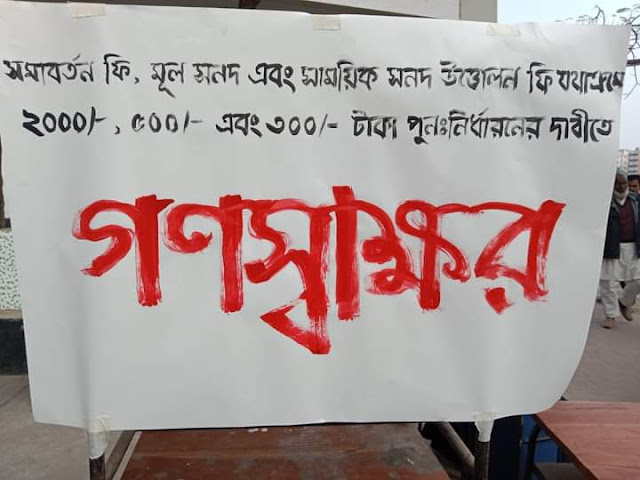 সমাবর্তন ফি, মূল সনদ এবং সাময়িক সনদ উত্তোলন ফি যথাক্রমে
২০০০/-, ৫০০/- এবং ৩০০/- টাকা পুনঃনির্ধারনের দাবীতে
গণস্বাক্ষর